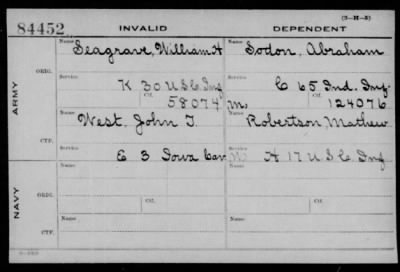 (3-H-3)
84452 INVALID DEPENDENT
Name Seagrave, William H Name Sodon, Abraham
ORIG.
Service K 30 U S C Inf Service C 65 Ind. Inf.
Ctf. 58074 M. Ctf. 124076
ARMY
Name West, John T. Name Robertson, Mathew
CTF.
Service E 3 Iowa Cav Service W. A 17 U S C. Inf
Name Name
ORIG.
Service Ctf. Service Ctf.
NAVY
Name Name
CTF.
Service Service